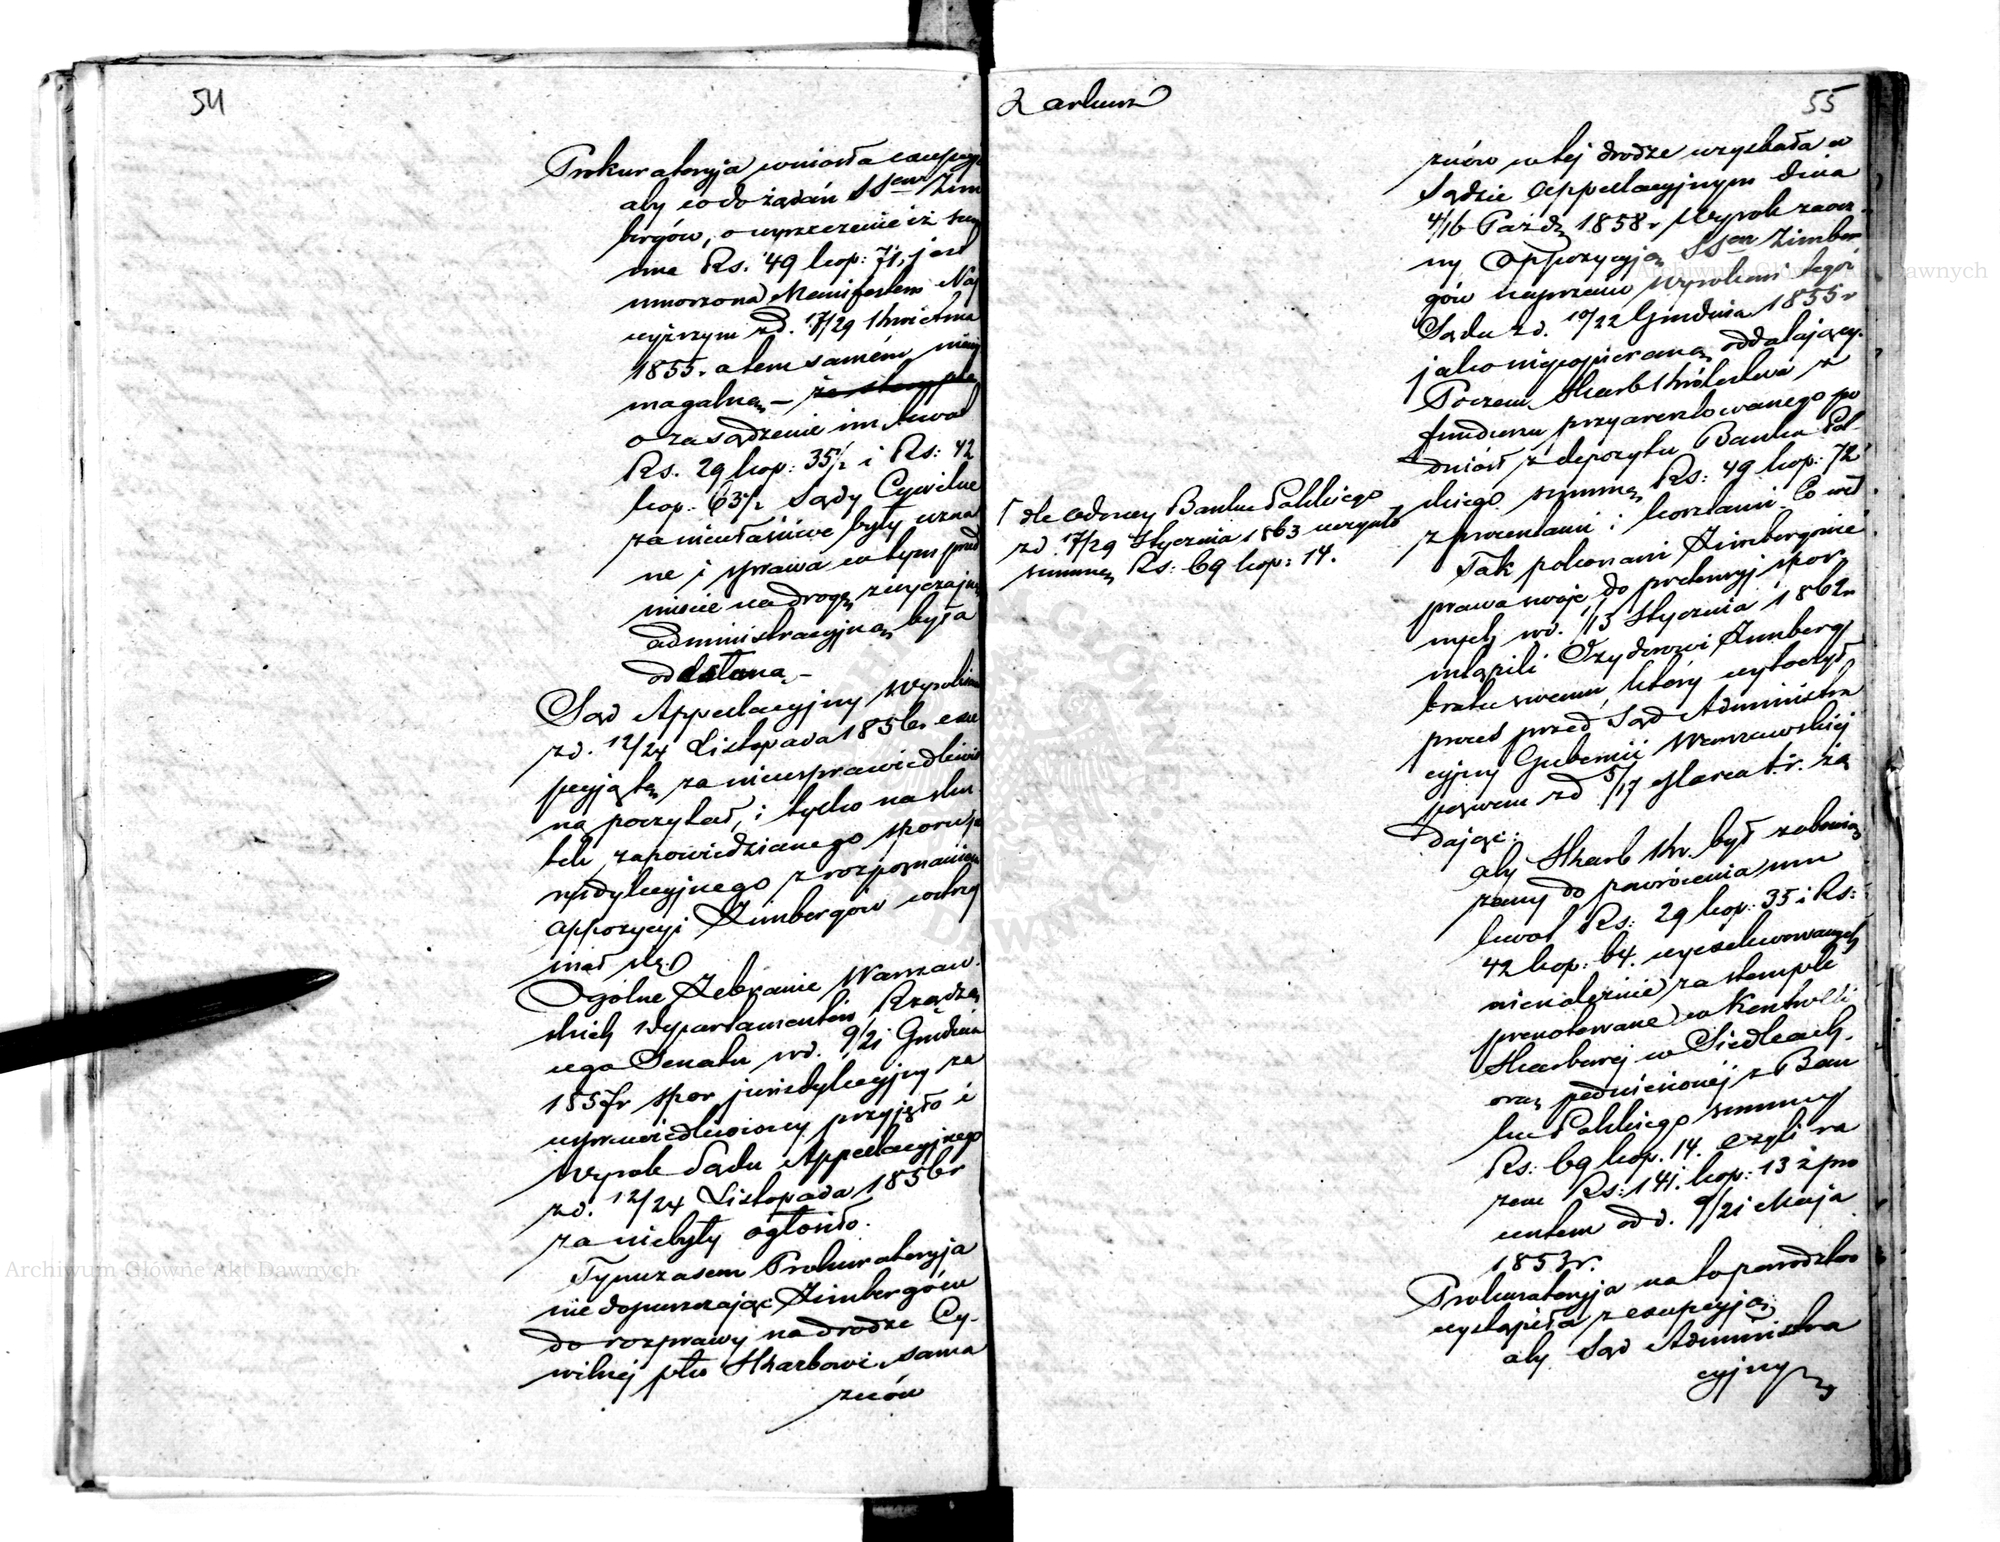 54
Prokuratoryja wniosła excepcyę
aby co do żądań SSów Zim
bergów, o wyrzeczenie iż sum
ma Rs. 49 kop: 71, jest
umorzona Manifestem Naj
wyższym z d. 17/29 Kwietnia
1855. a tem samém niewy
magalną — za stemple
o zasądzenie im kwot
Rs. 29 kop: 35½ i Rs: 42
kop: 63½ Sądy Cywilne
za niewłaściwe były uzna
ne i sprawa w tym przed
miocie na drogę zwyczajną
administracyjną była
oddaloną. —
Sąd Appellacyjny Wyrokiem
z d. 12/24 Listopada 1856r. exce
pcyją tę za nieusprawiedliwio
ną poczytał, i tylko na sku
tek zapowiedzianego sporu ju
rysdykcyjnego z rozpoznaniem
oppozycyi Zimbergów wstrzy
mał się.
Ogólne Zebranie Warszaw.
skich Departamentów Rządzą
cego Senatu w d. 9/21 Grudnia
1857r spor jurisdykcyjny za
usprawiedliwiony przyjęło i
Wyrok Sądu Appellacyjnego
z d. 12/24 Listopada 1856r
za niebyły ogłosiło.
Tymczasem Prokuratoryja
niedopuszczając Zimbergów
do rozprawy na drodze Cy-
wilnej pko Skarbowi sama
znów
2 arkusz
55
znów w tej drodze uzyskała w
Sądzie Appellacyjnym dnia
4/16 Paźdz 1858r Wyrok zaocz-
ny Oppozycyją SSów Zimber
gów naprzeciw Wyrokowi tegoż
Sądu z d. 10/22 Grudnia 1855r
jako niepopieraną oddalający.
Poczem Skarb Królestwa z
funduszu przyaresztowanego po
dniósł z depozytu Banku Pol-
skiego summę Rs: 49 kop: 72
z procentami i kosztami. Co wedł
dle odezwy Banku Polskiego
z d. 17/29 Stycznia 1863 uczyniło
summę Rs: 69 kop: 14.
Tak pokonani Zimbergowie
prawa swoje do pretensyj spor
nych w d. 1/13 Stycznia 1862r
ustąpili Izydorowi Zimberg
bratu swemu, który wytoczył
proces przed Sąd Administra
cyjny Gubernii Warszawskiej
pozwem z d 5/17 Marca t.r. żą
dając:
aby Skarb Kr. był zobowią
zany do powrócenia mu
kwot Rs: 29 kop: 35 i Rs:
42 kop: 64. wyexekwowanych
nienależnie za stemple
prenotowane w Kontrolli
Skarbowej w Siedlcach.
oraz podniesionej z Ban
ku Polskiego summy
Rs: 69 kop. 14. czyli ra
zem Rs: 141. kop: 13 z pro
centem od d. 9/21 Maja
1853r.
Prokuratoryja na to powództwo
wystąpiła z excepcyją:
aby Sąd Administra
cyjny
Archiwum Główne Akt Dawnych
Archiwum Główne Akt Dawnych